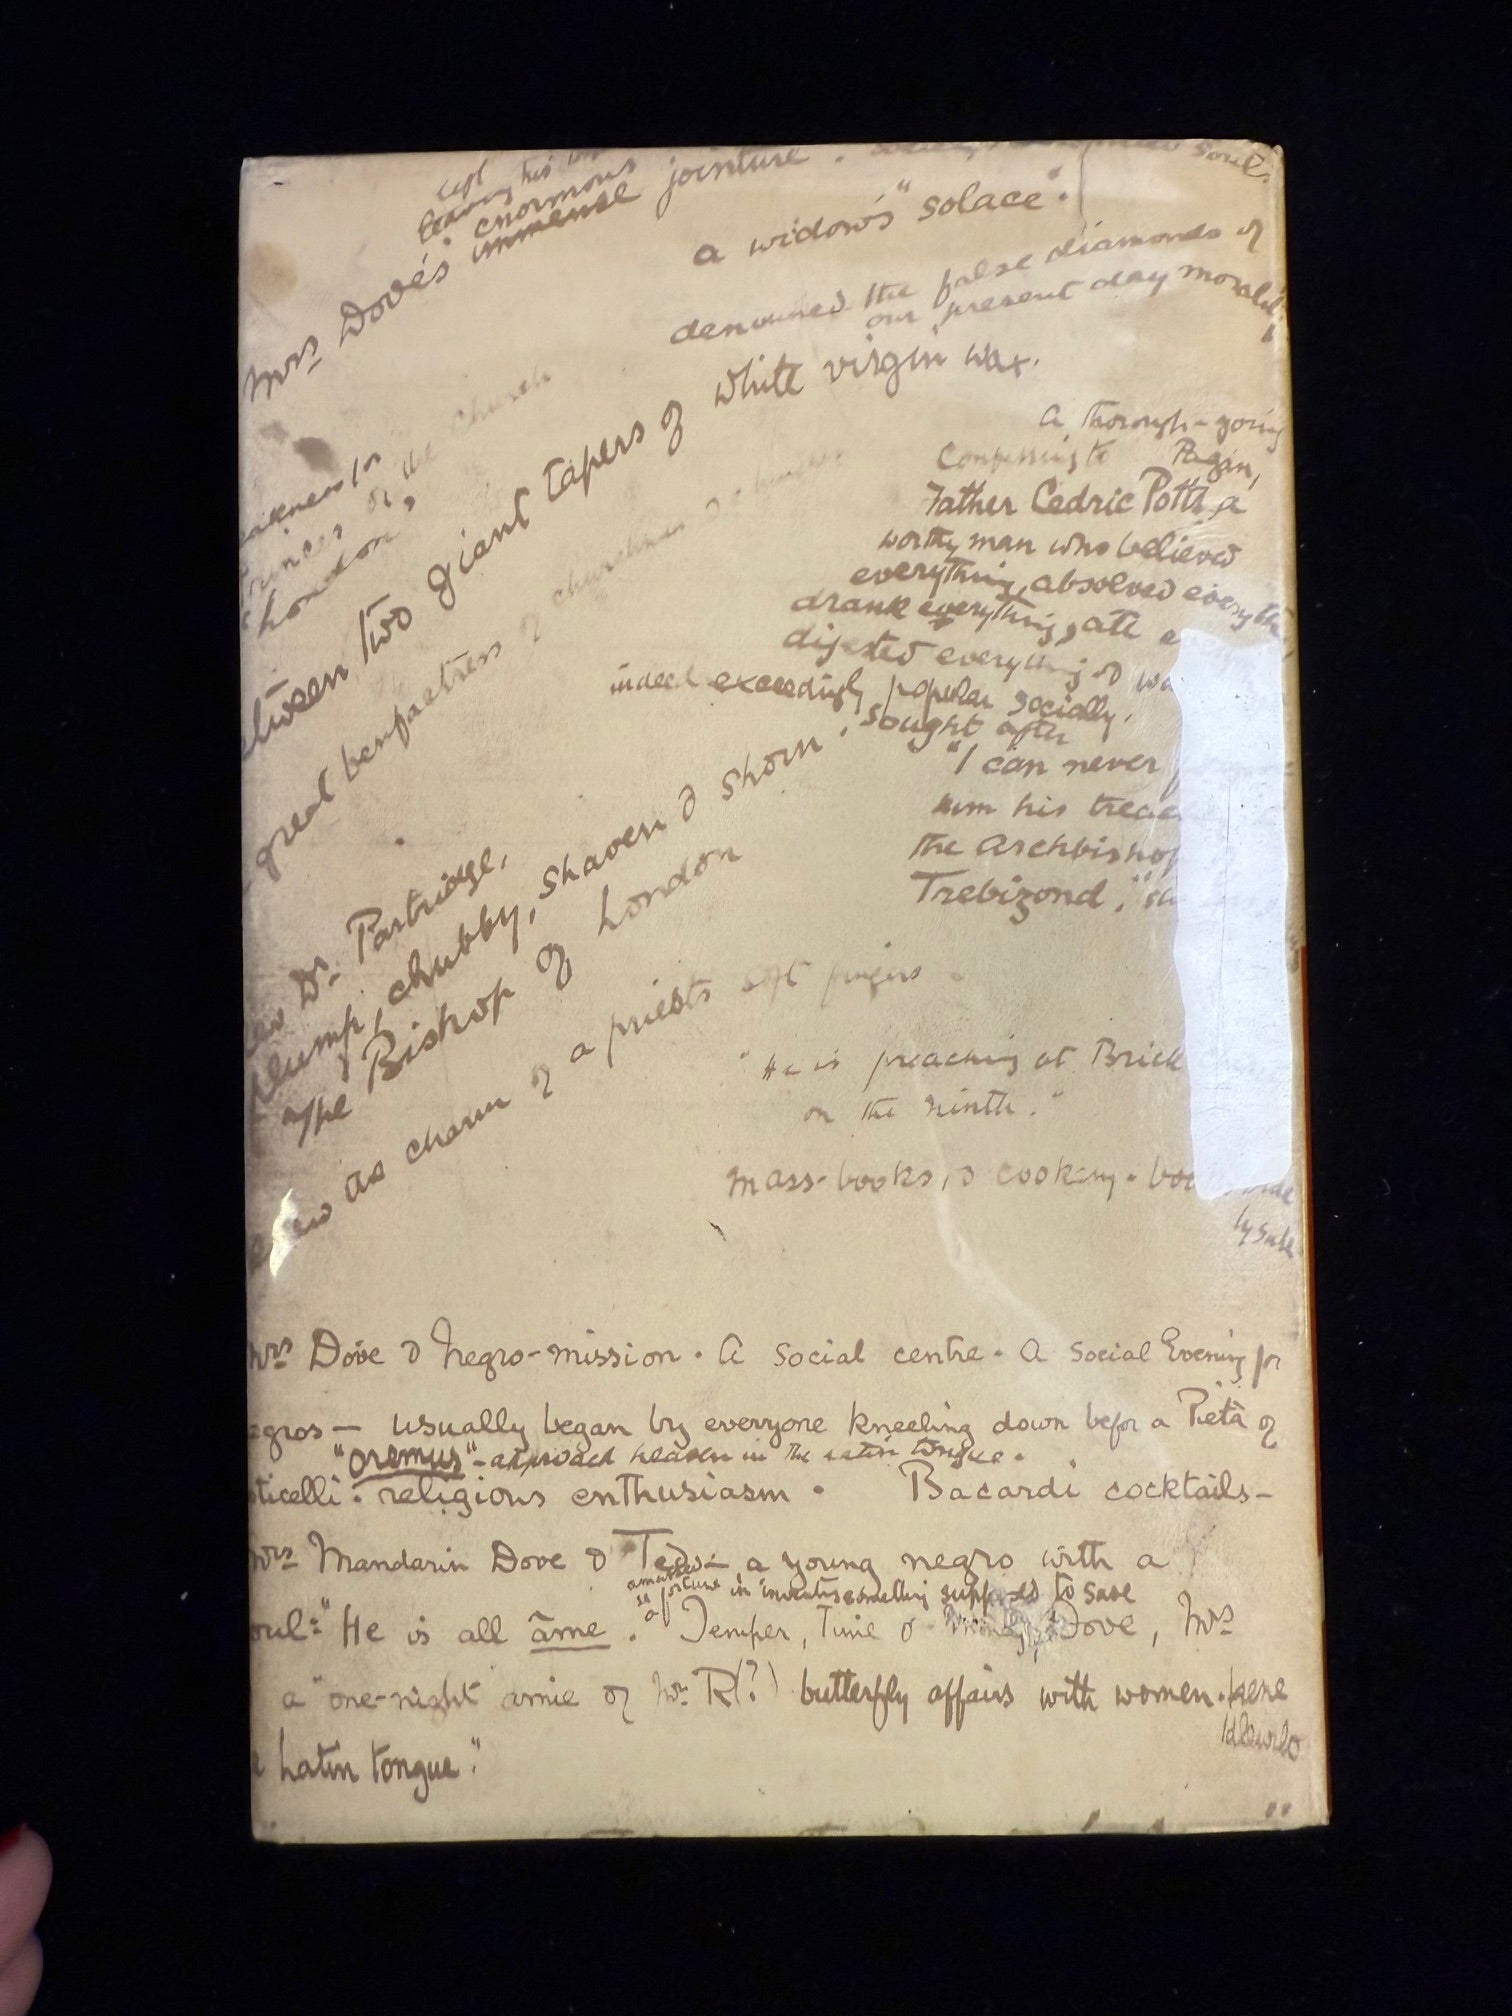 kept
leaving his
enormous
Mrs Dove's immense jointure.
souls
a widow's "solace".
denounced the false diamonds of
our present day morality"
for
of the church
London,
two giant tapers of white virgin wax.
great benefactress of churches & churches
a thorough-going
Confessing to Pagin,
Father Cedric Potts, a
worthy man who believed
everything, absolved everything,
drank everything, ate
digested everything &
indeed exceedingly popular socially.
sought after
"I can never
his
the Archbishop
Trebizond,"
Dr. Partridge,
plump, chubby, shaven & shorn.
The Bishop of London
as charm of a priests soft fingers
"He is preaching at Brick
on the ninth."
Mass-books, & cooking-
by side
Mrs Dove & Negro-mission. A social centre. A social Evening for
— usually began by everyone kneeling down befor a Pietà of
"Oremus" - approach heaven in the latin tongue.
religious enthusiasm. Bacardi cocktails—
Mrs Mandarin Dove & Ted— a young negro with a
amassed
a fortune in inventing something supposed to save
"He is all âme." Temper, Time & Dove, Mrs
a "one-night amie of Mr R(?) butterfly affairs with women. Irene
Latin tongue."